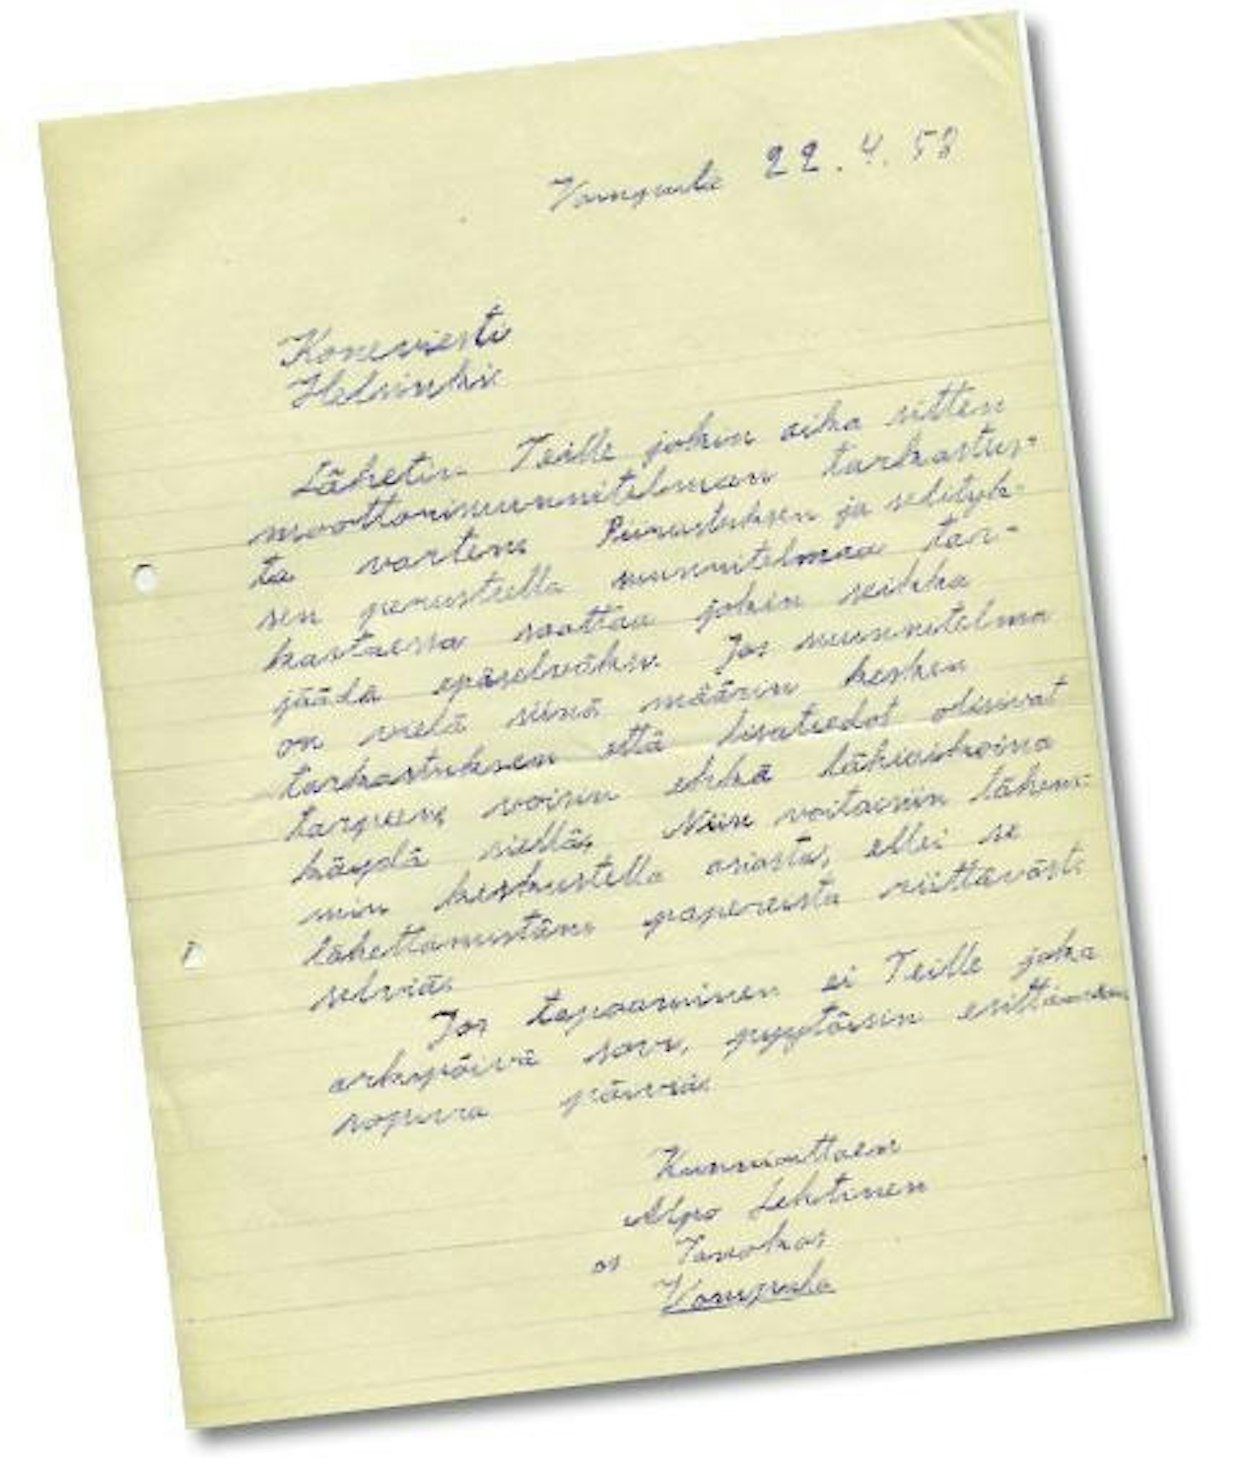 Vampula 22.4.58
Koneviesti
Helsinki
Lähetin Teille jokin aika sitten
moottorisuunnitelman tarkastus-
ta varten. Piirustuksen ja selityk-
sen perusteella suunnitelmaa tar-
kastaessa saattaa jokin seikka
jäädä epäselväksi. Jos suunnitelma
on vielä siinä määrin kesken
tarkastuksen että lisätiedot olisivat
tarpeen, voisin ehkä lähiaikoina
käydä siellä. Näin voitaisiin lähem-
min keskustella asiasta, ellei se
lähettämistäni papereista riittävästi
selviä.
Jos tapaaminen ei Teille joka
arkipäivä sovi, pyytäisin esittämään
sopivia päiviä.
Kunnioittaen
Alpo Lehtinen
os
Vampula